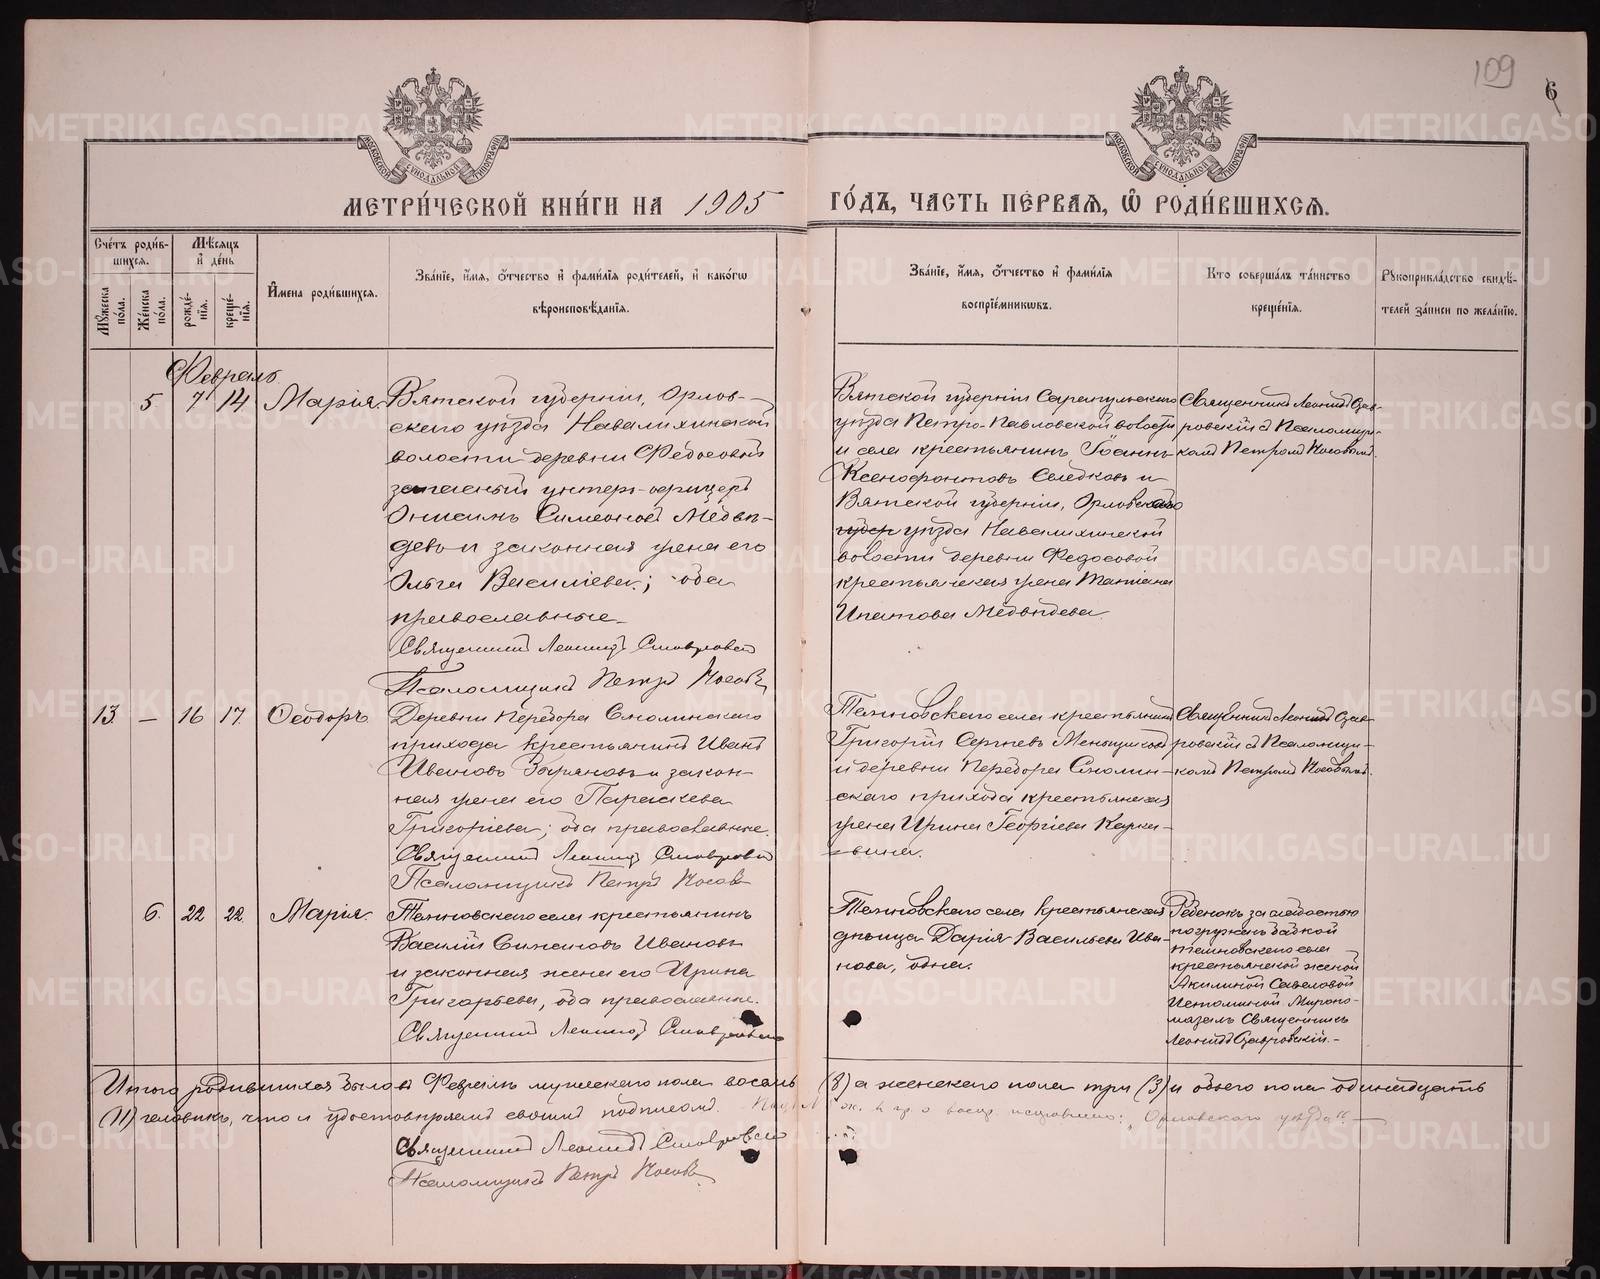 109
6
МОСКОВСКОЙ СѴНОДАЛЬНОЙ ТИПОГРАФІИ
МОСКОВСКОЙ СѴНОДАЛЬНОЙ ТИПОГРАФІИ
МЕТРИ́ЧЕСКОЙ КНИ́ГИ НА 1905 ГО́ДЪ, ЧАСТЬ ПЕ́РВАѦ, Ѽ РОДИ́ВШИХСѦ.
Сче́тъ роди́в-
шихсѧ.
Мꙋ́жеска по́ла.
Же́нска по́ла.
Мѣ́сѧцъ и҆ де́нь
рожде́-
нїѧ.
креще́-
нїѧ.
И҆мена роди́вшихсѧ.
Зва́нїе, и҆́мѧ, ѻ҆́тчество и҆ фами́лїѧ роди́телей, и҆ како́гѡ
вѣроисповѣ́данїѧ.
Зва́нїе, и҆́мѧ, ѻ҆́тчество и҆ фами́лїѧ
воспрїе́мникѡвъ.
Кто соверша́лъ та́инство
креще́нїѧ.
Рꙋкоприкла́дство свидѣ́-
телей за́писи по жела́нїю.
Февраль
5. 7 14 Марія.
Вятской губерніи, Орлов-
скаго уѣзда Навалихинской
волости деревни Федосовой
запасный унтеръ-офицеръ
Онисимъ Симеоновъ Медвѣ-
девъ и законная жена его
Ольга Василіева; оба
православные.
Священникъ Леонидъ Ставровскій
Псаломщикъ Петръ Носовъ
Вятской губерніи Сарапульскаго
уѣзда Петро-Павловской волости
и села крестьянинъ Іоаннъ
Ксенофонтовъ Селдковъ и
Вятской губерніи, Орловскаго
уѣзда Навалихинской
волости деревни Федосовой
крестьянская жена Татіана
Ипатова Медвѣдева.
Священникъ Леонидъ Став-
ровскій съ Псаломщи-
комъ Петромъ Носовымъ.
13. – 16 17. Ѳеодоръ.
Деревни Передора Смолинскаго
прихода крестьянинъ Иванъ
Ивановъ и закон-
ная жена его Параскева
Григоріева; оба православные.
Священникъ Леонидъ Ставровскій
Псаломщикъ Петръ Носовъ
Темновскаго села крестьянинъ
Григорій Сергѣевъ Меньщиковъ
и деревни Передора Смолин-
скаго прихода крестьянская
жена Ирина Георгіева
Священникъ Леонидъ Став-
ровскій съ Псаломщи-
комъ Петромъ Носовымъ.
6. 22 22. Марія.
Темновскаго села крестьянинъ
Василій Ивановъ
и законная жена его Ирина
Григорьева, оба православные.
Священникъ Леонидъ Ставровскій
Темновскаго села крестьянская
дѣвица Дарія Васильева Ива-
нова, одна.
Ребенокъ за слабостью
погруженъ бабкой
Темновскаго села
крестьянской женой
Акилиной Савеловой
Истоминой. Миропо-
мазалъ Священникъ
Леонидъ Ставровскій.–
Итого родившихся было въ Февралѣ мужескаго пола восемь (8) а женскаго пола три (3) и обоего пола одиннадцать
(11) человѣкъ, что и удостовѣряемъ своимъ подписомъ. исправлено: „Орловскаго уѣзда".
Священникъ Леонидъ Ставровскій
Псаломщикъ Петръ Носовъ
METRIKI.GASO-URAL.RU